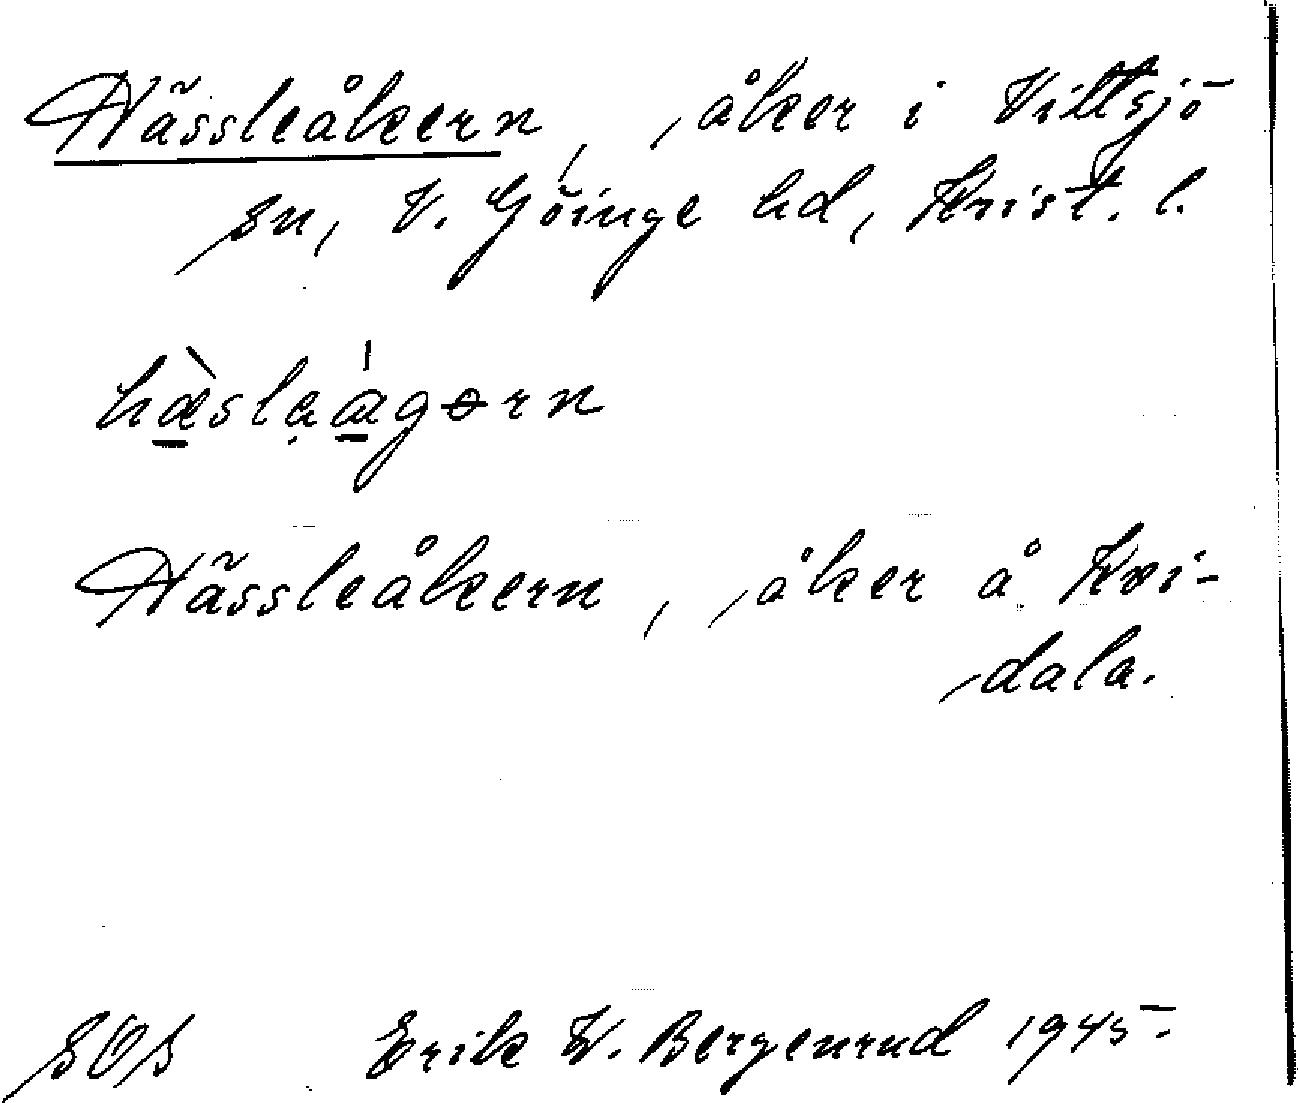 Hässleåkern, åker i Vittsjö
sn, V. Göinge hd, Krist. l.
hæ̀slaágərn
Hässleåkern, åker å Kvi-
dala.
SOS Erik W. Bergenrud 1945.